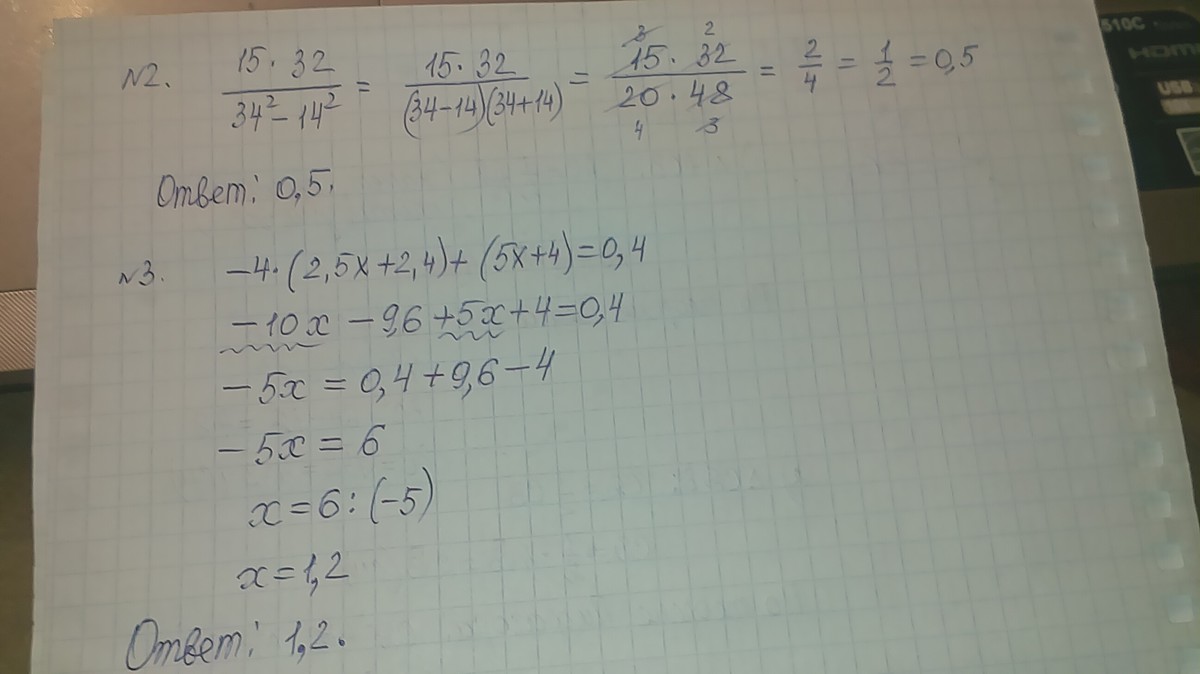 N2. 15 · 32 / 34² − 14² = 15 · 32 / (34−14)(34+14) = 15 · 32 / 20 · 48 = 2/4 = 1/2 = 0,5
3 2
4 3
Ответ: 0,5.
N3. −4·(2,5x+2,4)+(5x+4)=0,4
−10x −9,6 +5x+4=0,4
−5x = 0,4+9,6−4
−5x = 6
x=6:(−5)
x=1,2
Ответ: 1,2.
510C
HDMI
USB